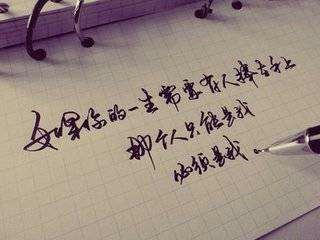 如果你的一生需要有人捧在手上
那个人只能是我
必须是我。